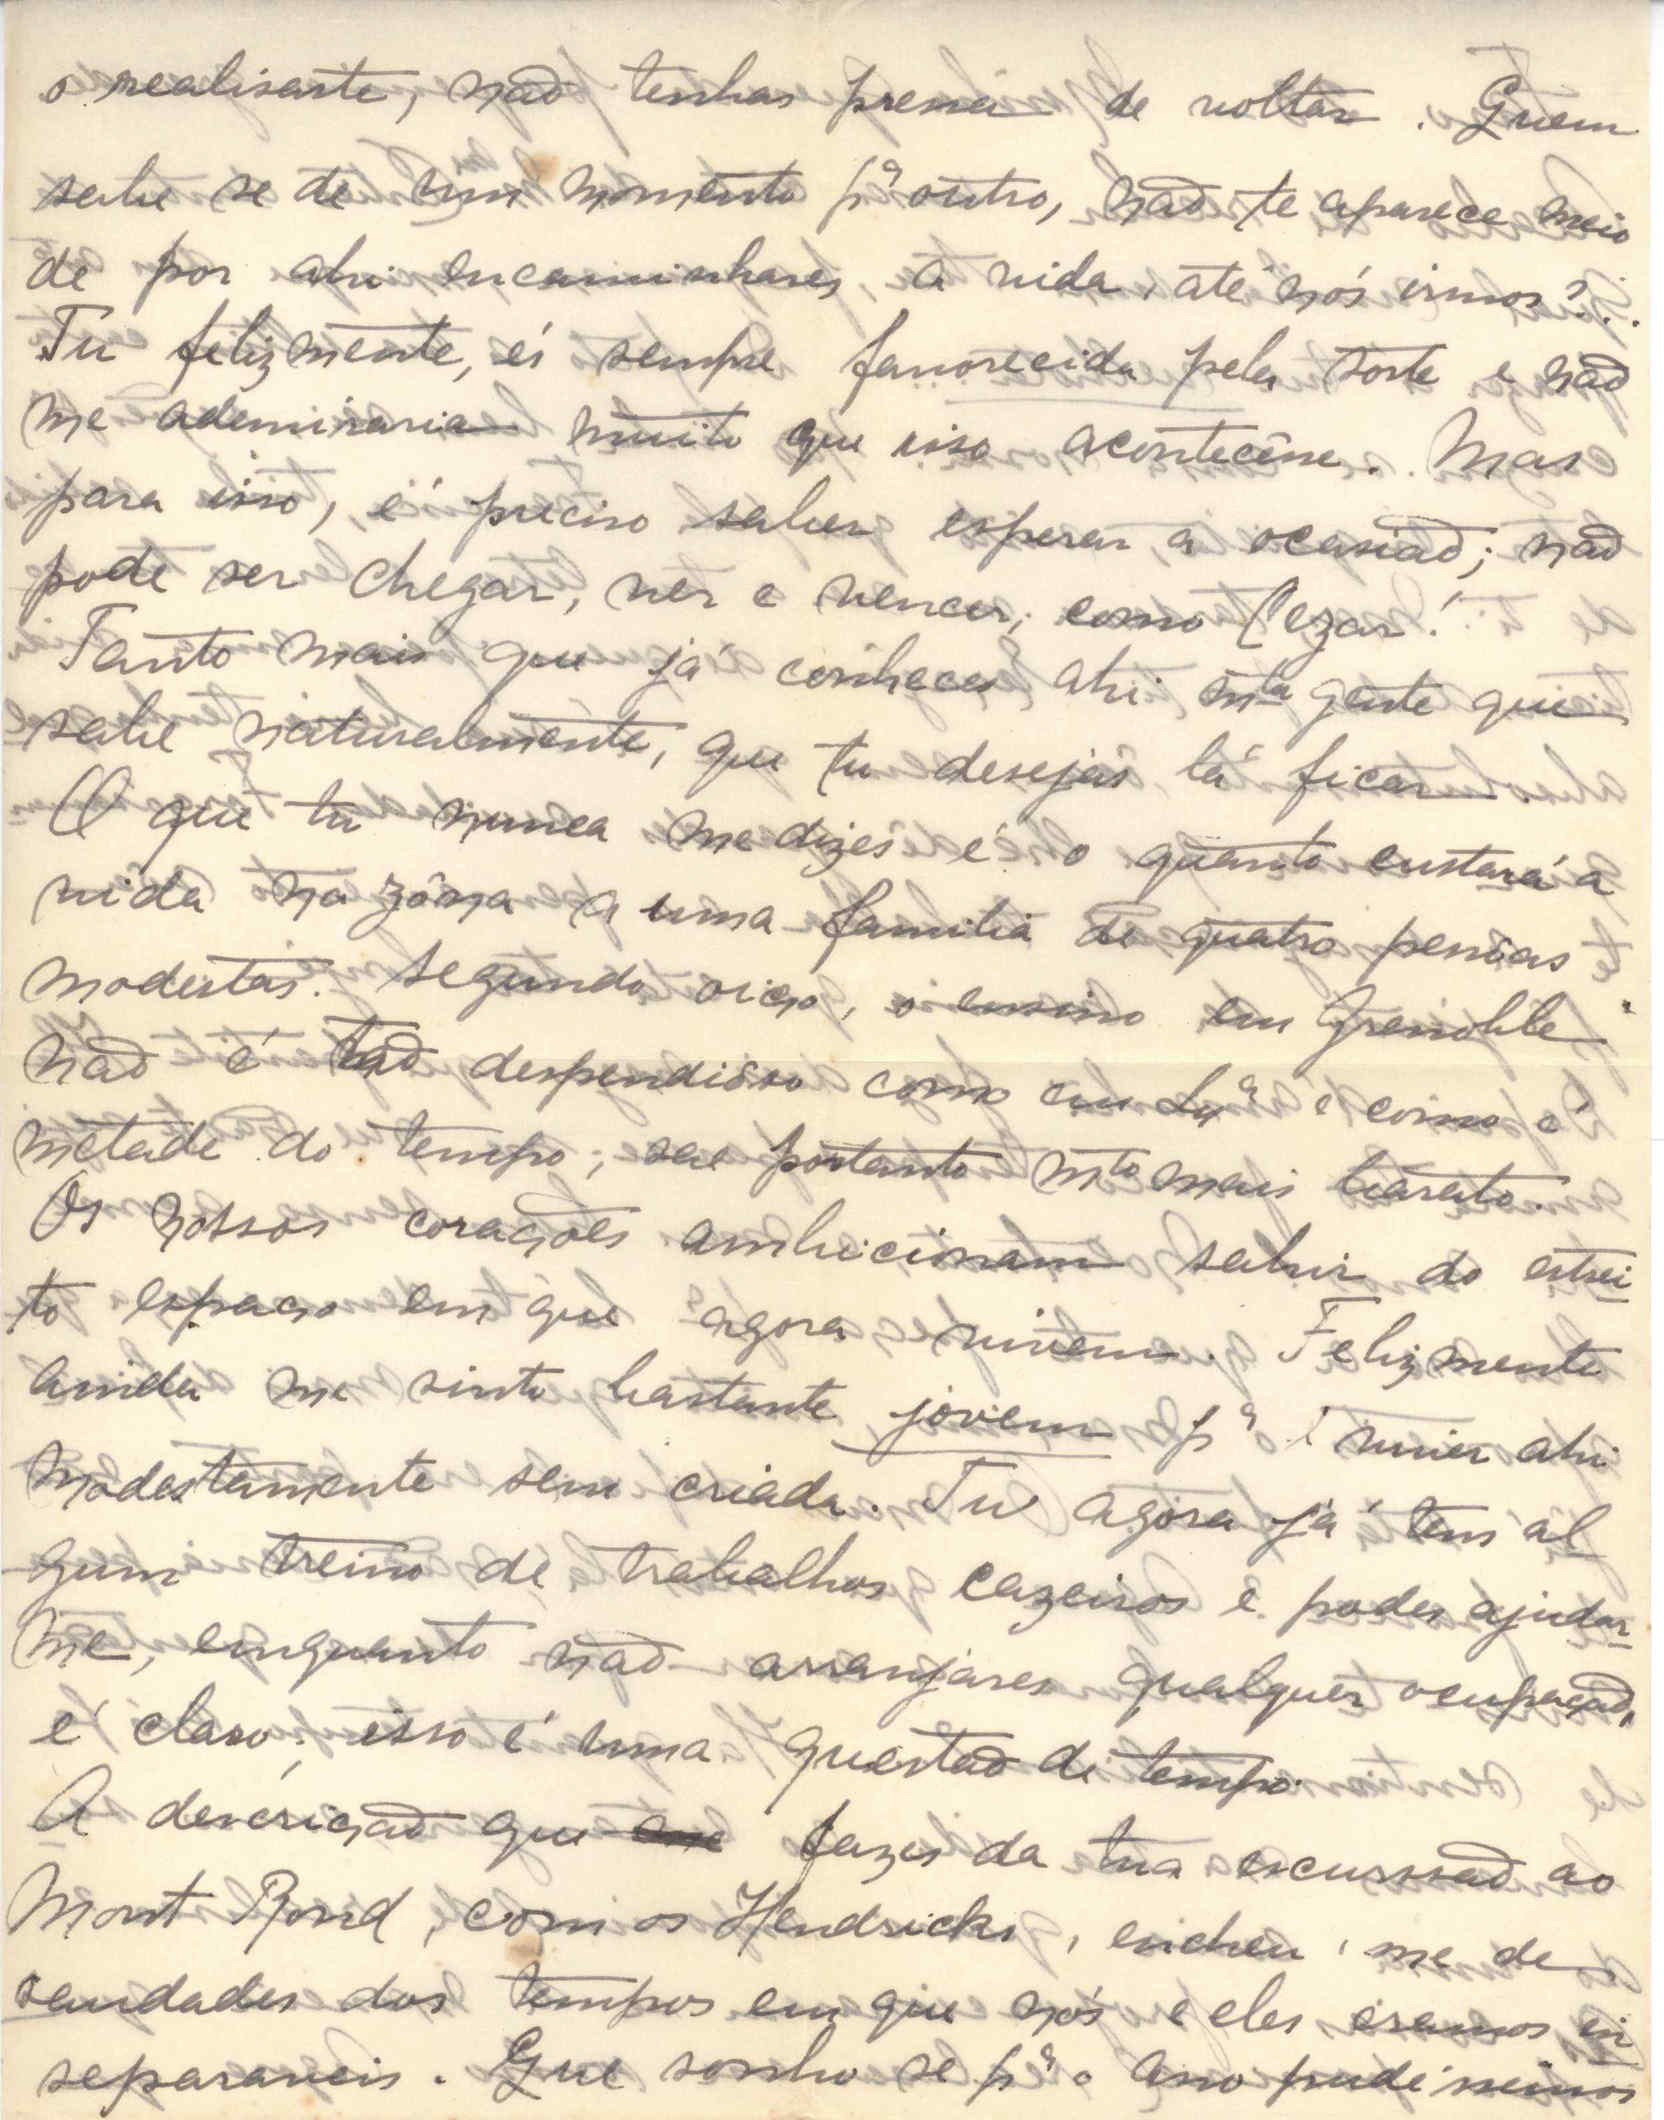 o realisaste, não tenhas pressa de voltar. Quem
sabe se de um momento pª outro, não te aparece meio
de por ahi encaminhares a vida, até nós irmos?..
Tu felizmente, és sempre favorecida pela sorte e não
me ademiraria muito que isso acontecêsse. Mas
para isso, é preciso saber esperar a ocasião; não
pode ser chegar, ver e vencer, como Cezar!
Tanto mais que já conheces ahi mta gente que
sabe naturalmente, que tu desejas lá ficar.
O que tu nunca me dizes é o quanto custará a
vida na zôna a uma familia de quatro pessôas
modestas. Segundo oiço, o ensino em Grenoble
não é tão despendiôso como em Lxª e como é
metade do tempo, sae portanto mto mais barato.
Os nossos corações ambicionam sahir do estrei-
to espaço em que agora vivem. Felizmente
ainda me sinto bastante jovem pª viver ahi
modestamente sem criada. Tu agora já tens al-
gum treino de trabalhos cazeiros e podes ajudar-
me, enquanto não arranjares qualquer ocupação,
é claro; isso é uma questão de tempo.
A descrição que fazes da tua escurssão ao
Mont Rond, com os Hendricks, encheu-me de
saudades dos tempos em que nós e eles eramos in-
separaveis. Que sonho se pª o ano pudéssemos